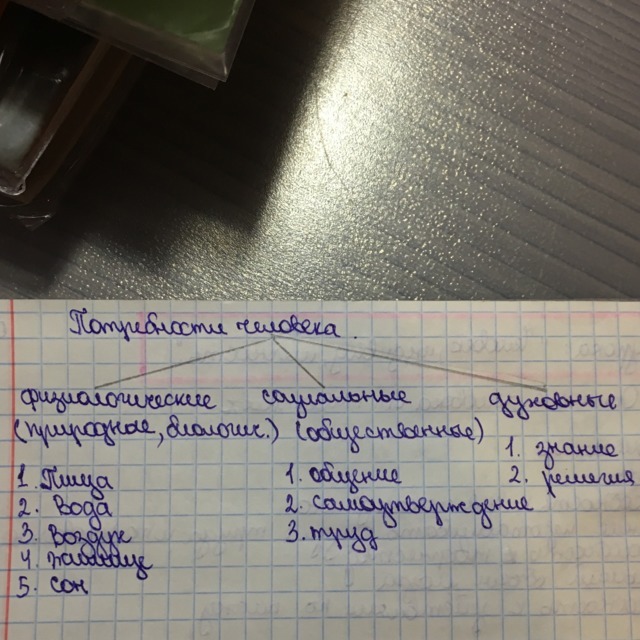 Потребности человека.
физиологические социальные духовные
(природные, биологич.) (общественные)
1. знание
2. религия
1. Пища
2. Вода
3. Воздух
4. жилище
5. сон
1. общение
2. самоутверждение
3. труд